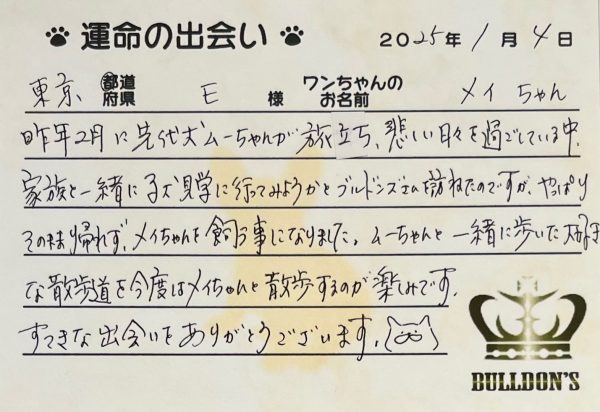 運命の出会い 2025年 1月 4日
東京 都道府県 E 様 ワンちゃんのお名前 メイ ちゃん
昨年2月に先代犬ムーちゃんが旅立ち、悲しい日々を過ごしている中、
家族と一緒に子犬見学に行ってみようかとブルドンズさんを訪ねたのですが、やっぱり
そのまま帰れず、メイちゃんを飼う事になりました。ムーちゃんと一緒に歩いた大好き
な散歩道を今度はメイちゃんと散歩するのが楽しみです。
すてきな出会いをありがとうございます。
BULLDON'S